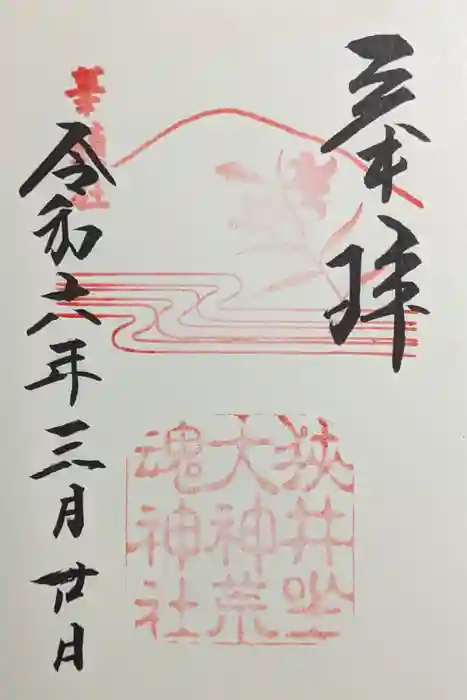 奉拝
華鎮社
令和六年三月廿日
狹井坐
大神荒
魂神社